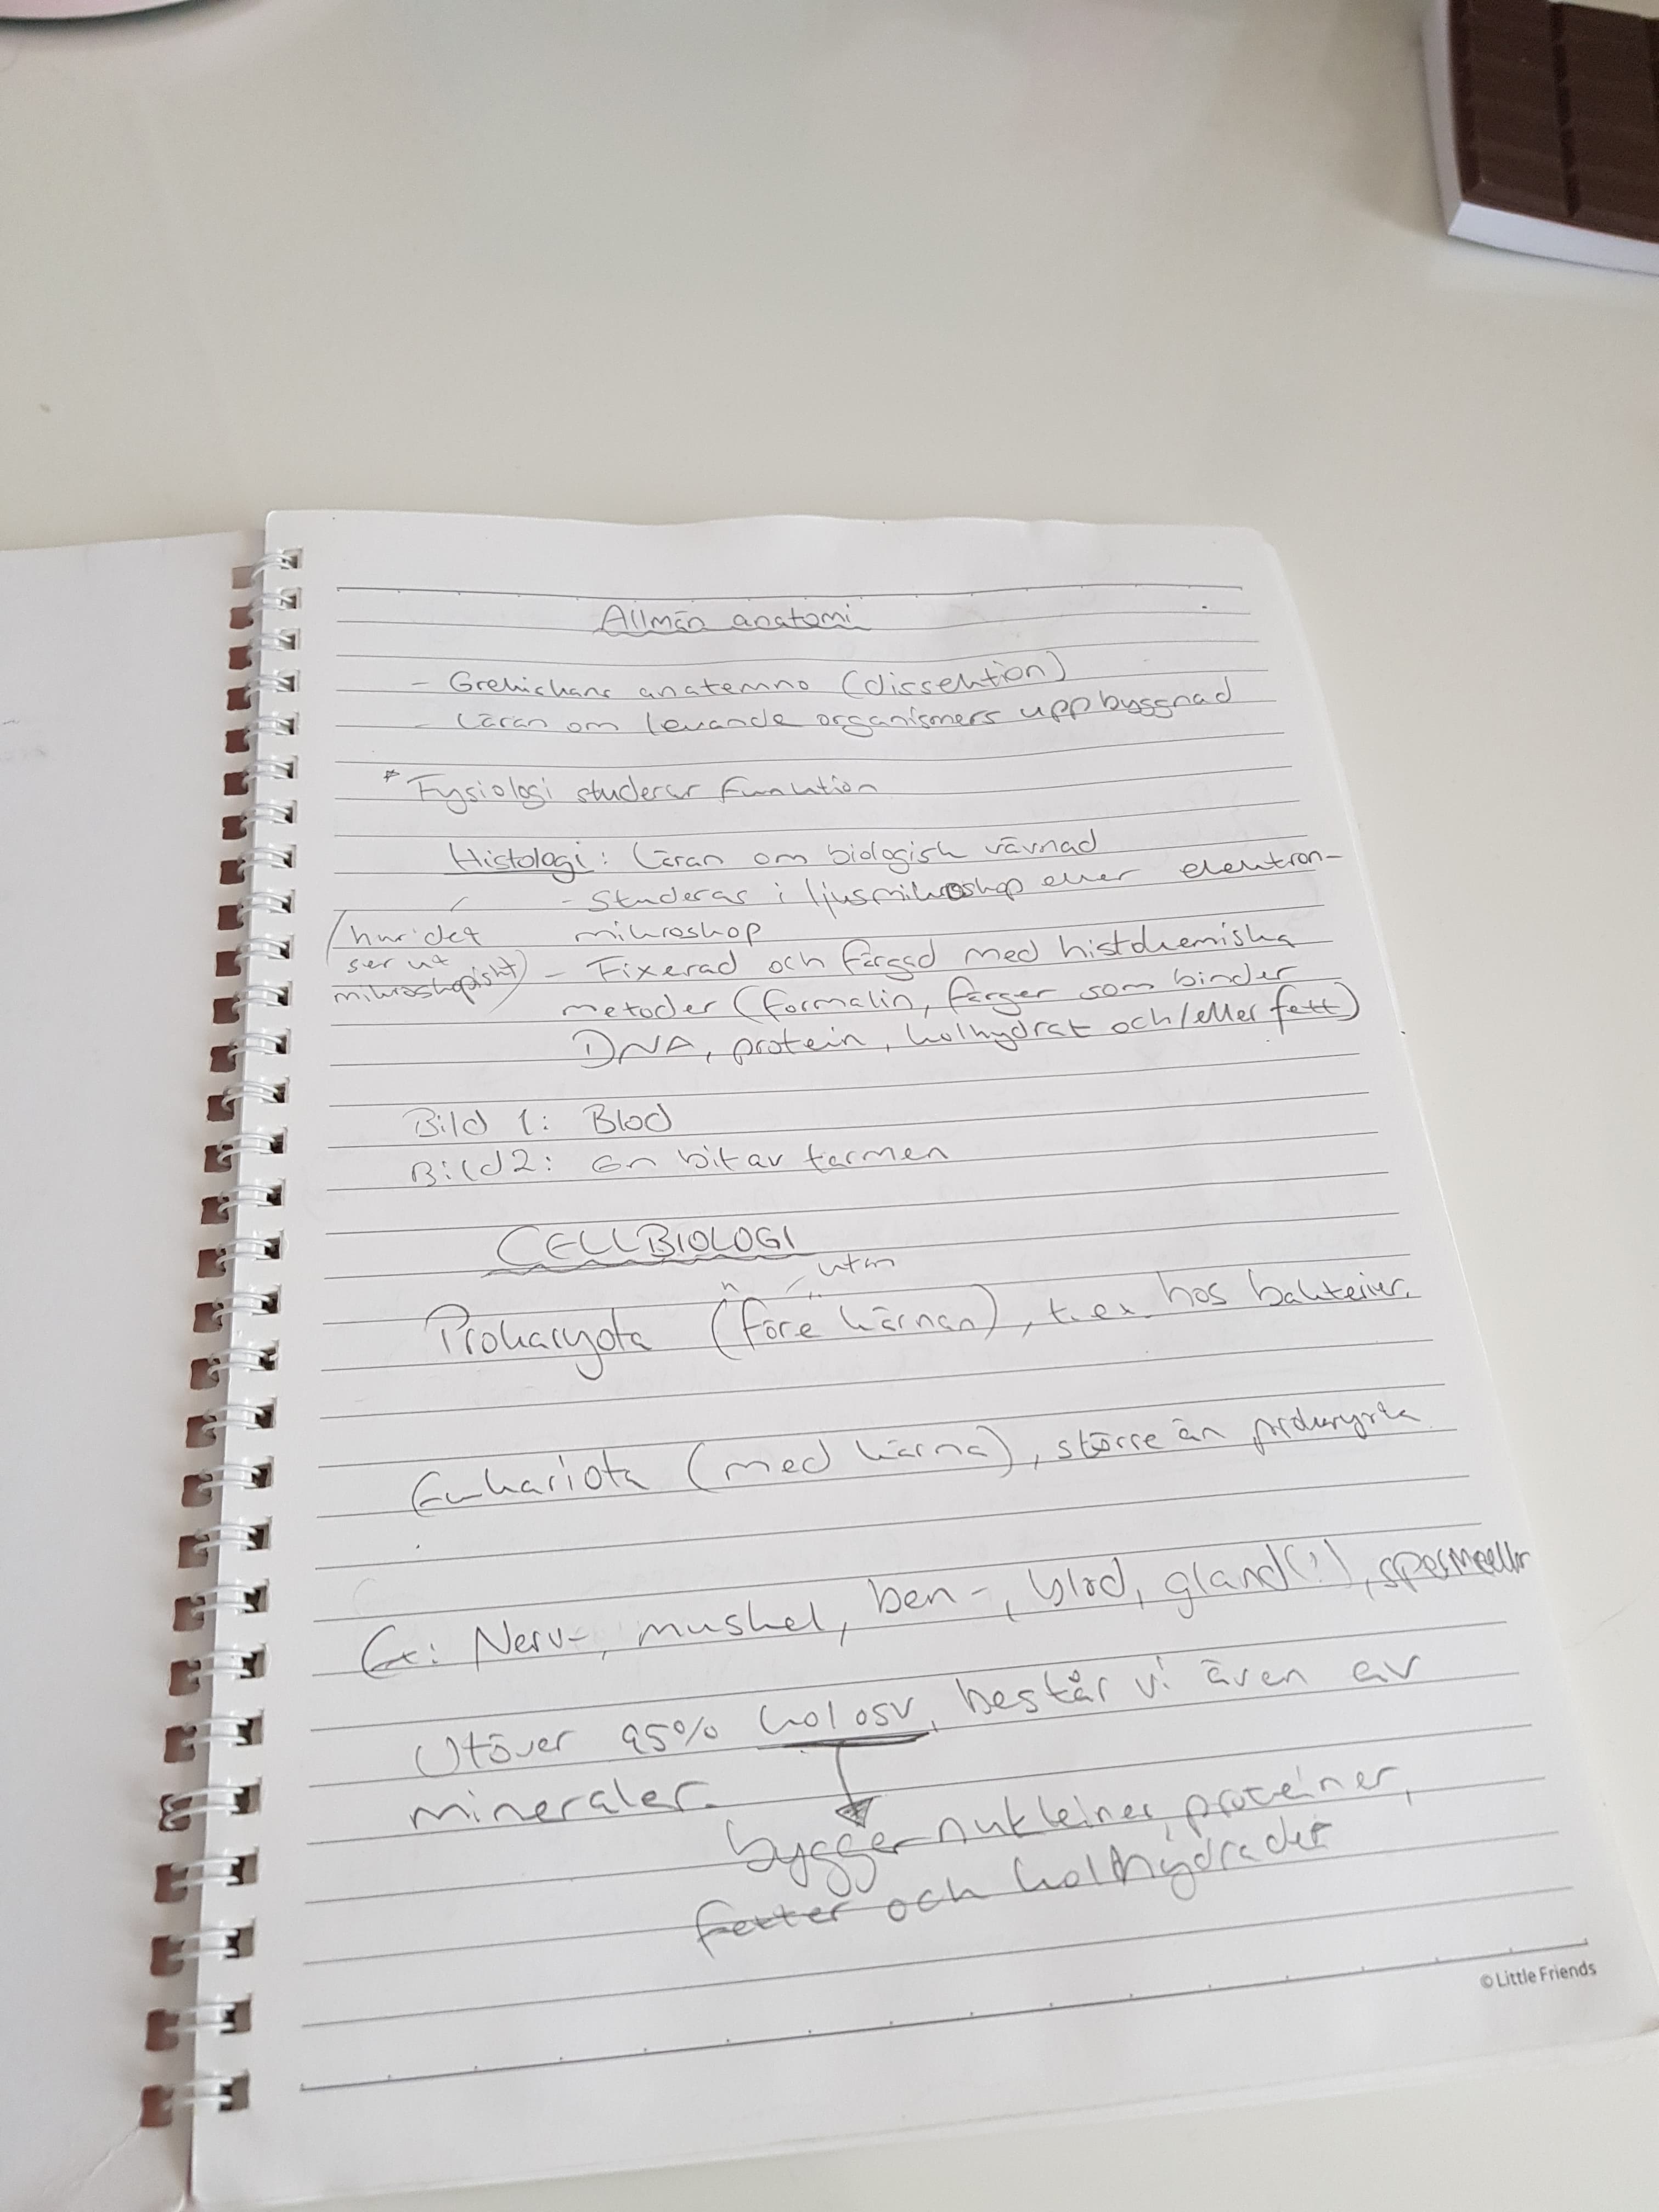 Allmän anatomi
- Grekiskans anatemno (dissektion)
- Läran om levande organismers uppbyggnad
* Fysiologi studerar funktion
Histologi: Läran om biologisk vävnad
- Studeras i ljusmikroskop eller elektron-
mikroskop
(hur det
ser ut
mikroskopiskt)
- Fixerad och färgad med histokemiska
metoder (formalin, färger som binder
DNA, protein, kolhydrat och/eller fett)
Bild 1: Blod
Bild 2: En bit av tarmen
CELLBIOLOGI
utan
Prokaryota (före kärnan), t.ex. hos bakterier.
Eukariota (med kärna), större än prokaryota
Ex: Nerv-, muskel, ben-, blod, gland(!), spermceller
Utöver 95% kol osv, består vi även av
mineraler.
bygger nukleiner, proteiner,
fetter och kolhydrader
© Little Friends